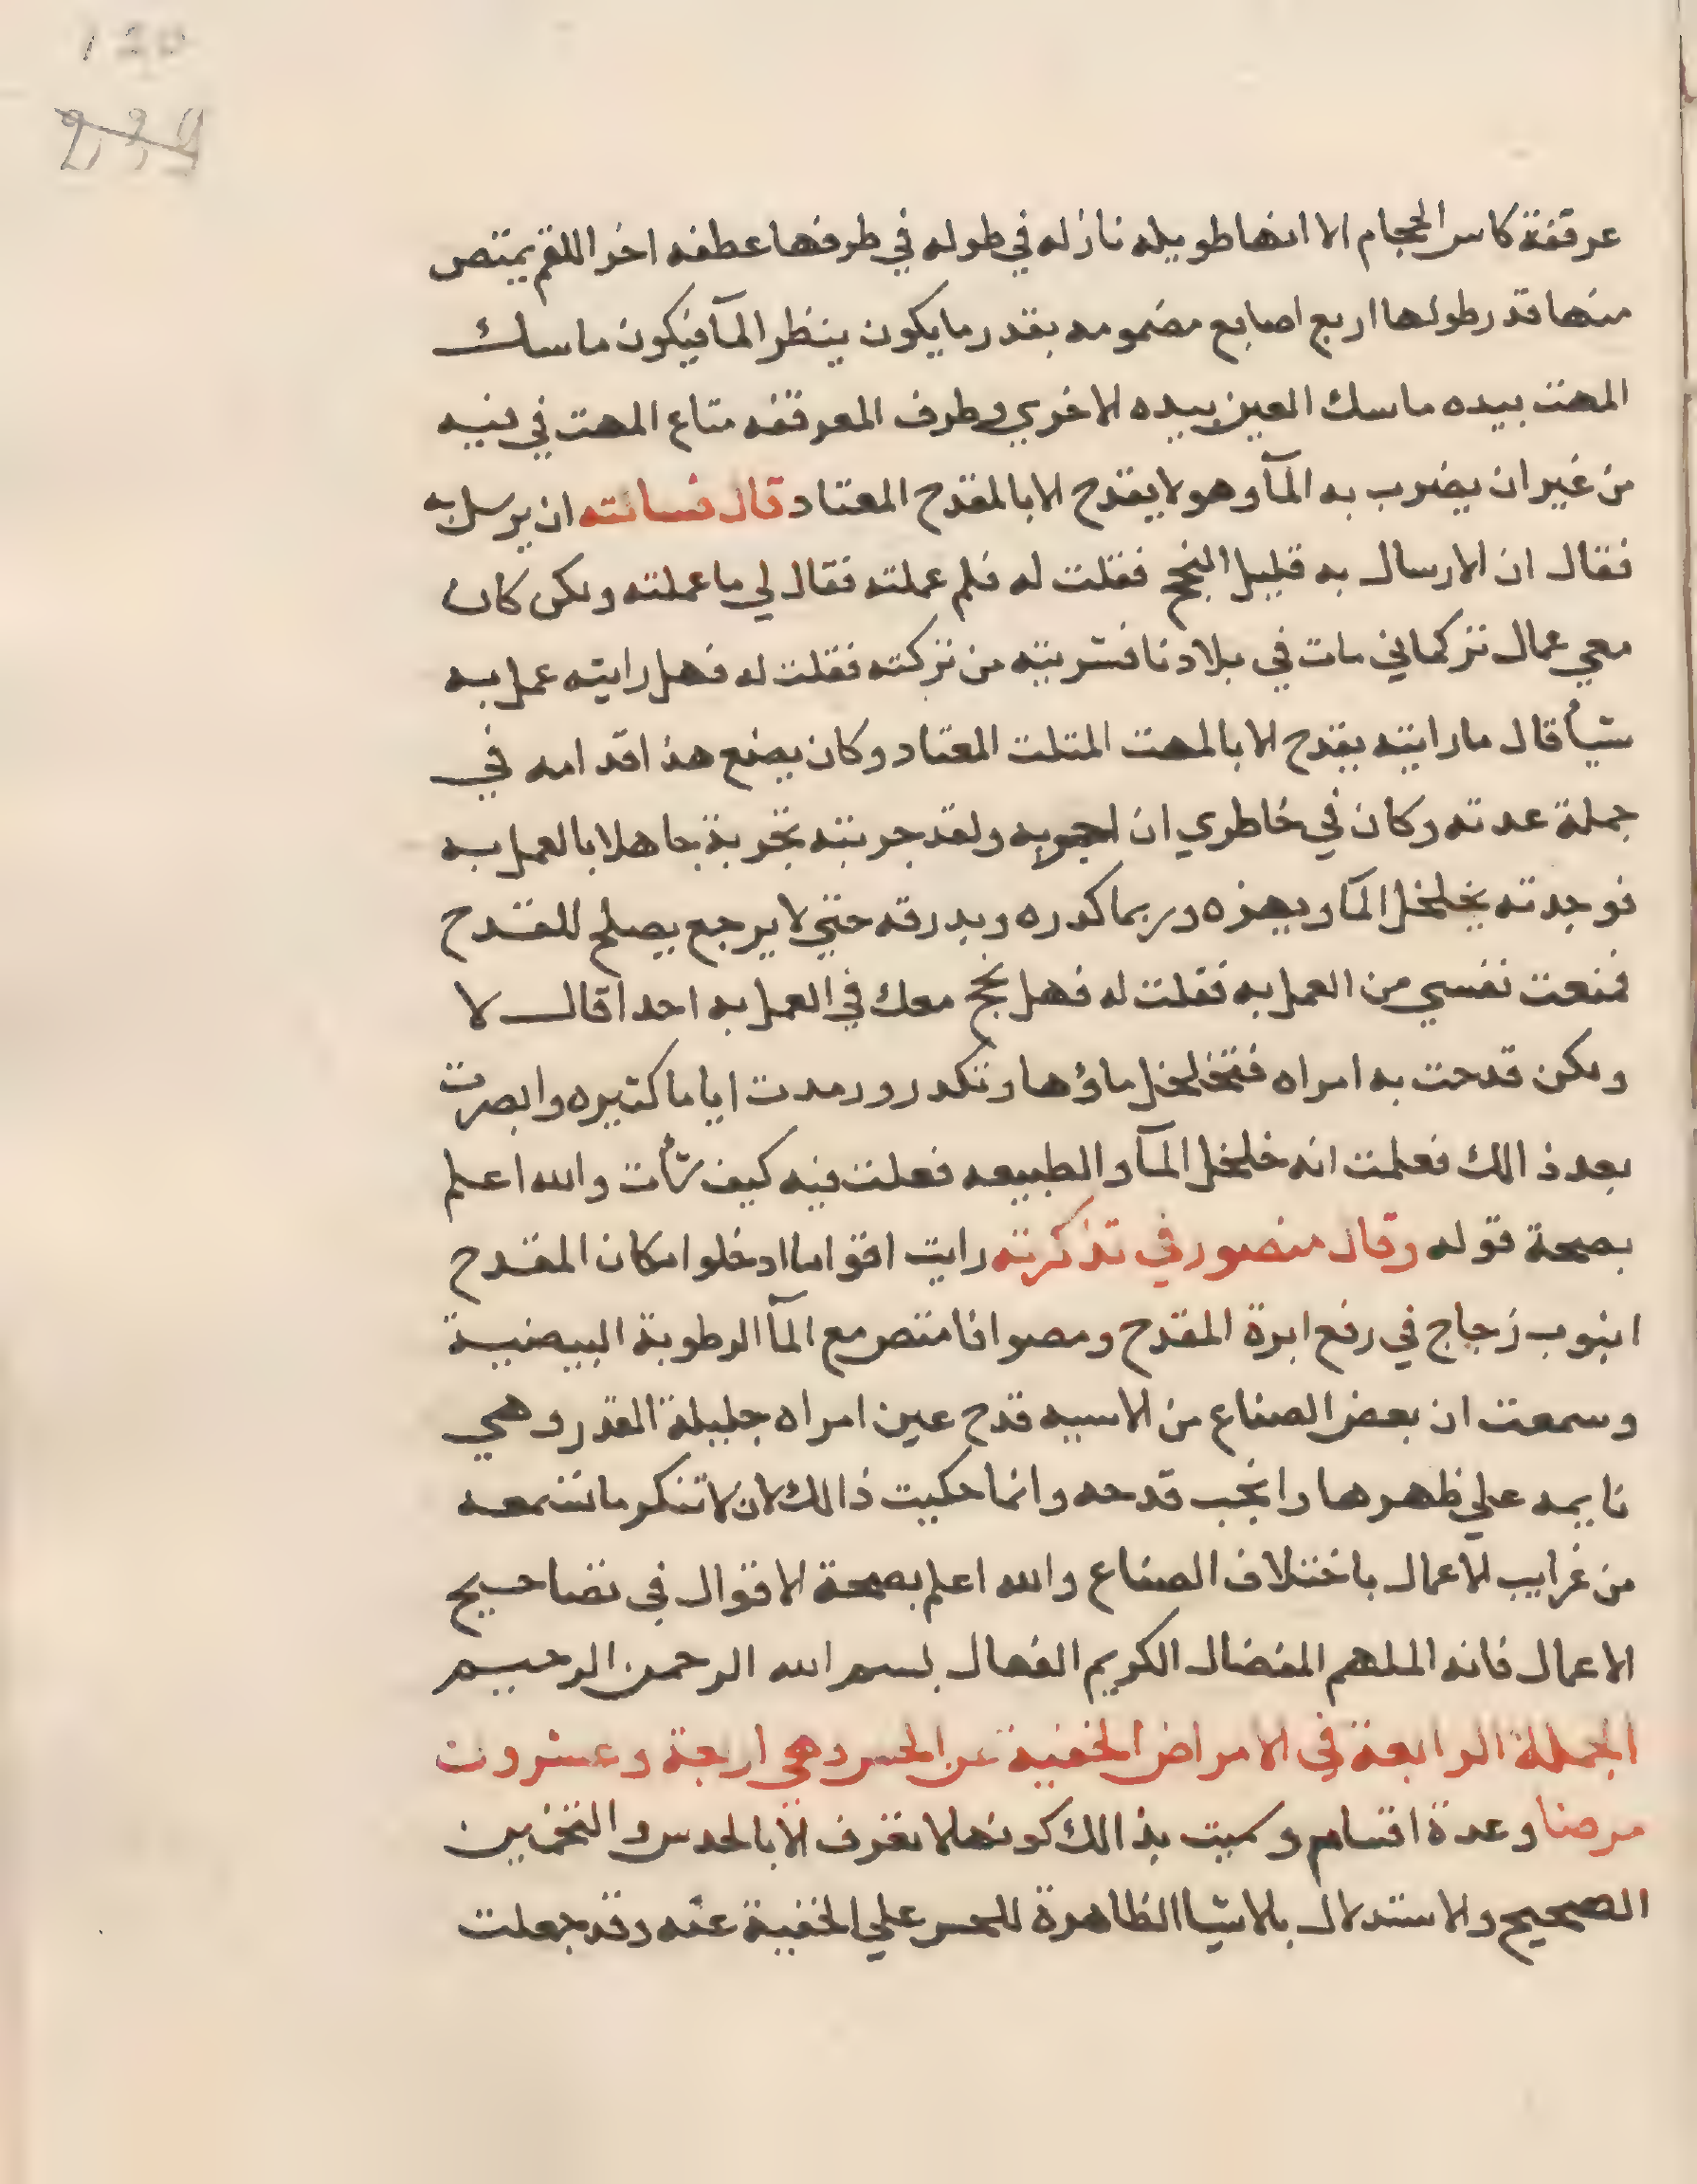 120
239
عرقفة كاس الحجام الا انها طويله نازله في طوله في طرفها عطفه اخر اللقم يمتص
منها قدر طولها اربع اصابع مضمومه بقدر ما يكون ينظر المآ فيكون ماسك
المهت بيده ماسك العين بيده الاخري وطرف المعرقفه متاع المهت في فيه
من غير ان يضرب به المآ وهو لا يقدح الا بالمقدح المعتاد قال فسالته ان يرسل به
فقال ان الارسال به قليل النجح فقلت له فلم عملته فقال لي ما عملته ولكن كان
معي عمال تركماني مات في بلادنا فشريته من تركته فقلت له فهل رايته عمل به
شيأ قال ما رايته يقدح الا بالمهت المثلت المعتاد وكان يضع هذا قدامه في
جملة عدته وكان في خاطري ان اجربه ولقد جربته تجربة جاهلا بالعمل به
فوجدته يخلخل المآ ويهزه وربما كدره وبدرقه حتي لا يرجع يصلح للقدح
فمنعت نفسي من العمل به فقلت له فهل نجح معك في العمل به احدا قال لا
ولكن قدحت به امراه فتخلخل ماؤها وتكدر ورمدت اياما كثيره وابصرت
بعد ذالك فعلمت انه خلخل المآ والطبيعه فعلت فيه كيف شأت والله اعلم
بصحة قوله وقال منصور في تذكرته رايت اقواما ادخلوا مكان المقدح
انبوب زجاج في رفع ابرة المقدح ومصوا فامتص مع المآ الرطوبة البيضية
وسمعت ان بعض الصناع من الاسيه قدح عين امراه جليلة القدر وهي
نايمه علي ظهرها وانجب قدحه وانما حكيت ذالك لان لا تنكر ما تسمعه
من غرايب الاعمال باختلاف الصناع والله اعلم بصحة الاقوال في تضاحيح
الاعمال فانه الملهم المفضال الكريم الفعال بسم الله الرحمن الرحيم
الجملة الرابعة في الامراض الخفية عن الحس وهي اربعة وعشرون
مرضا وعدة اقسام وسميت بذالك كونها لا تعرف الا بالحدس والتخمين
الصحيح والاستدلال بالاشيا الظاهرة للحس علي الخفية عنه وقد جعلت